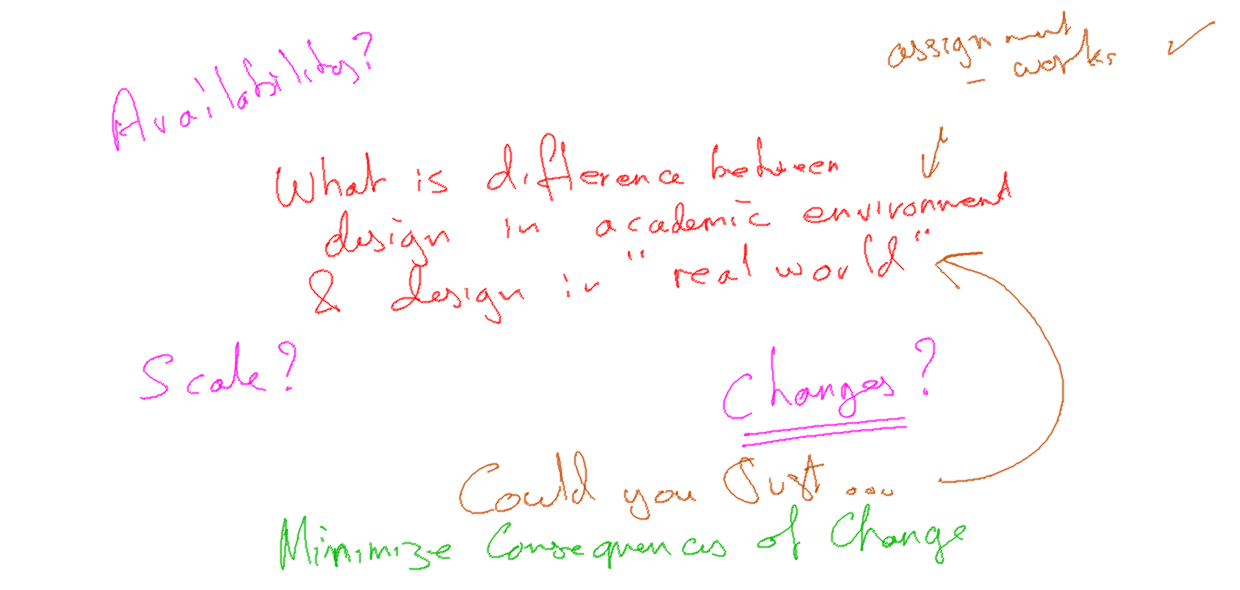 Availability?
assignment
- works ✓
What is difference between
design in academic environment
& design in "real world"
Scale?
Changes?
Could you Just ...
Minimize Consequences of Change